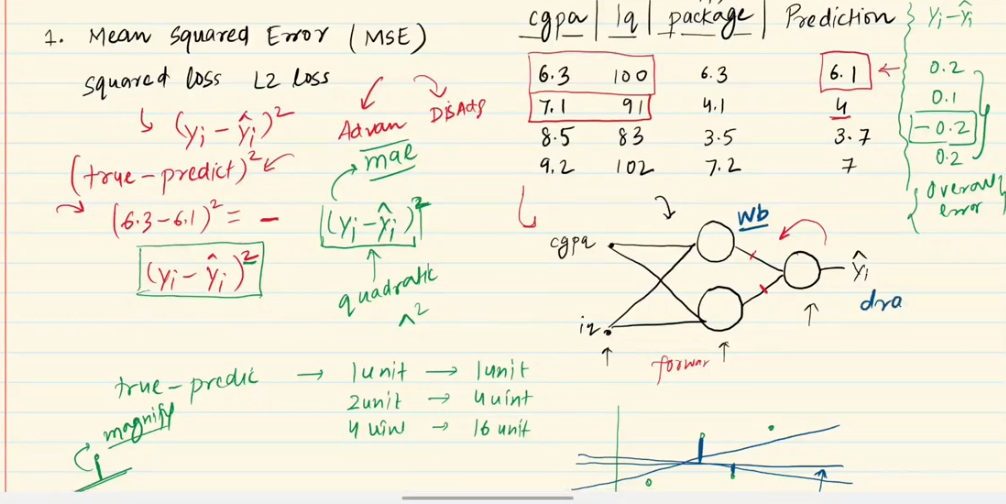 1. Mean Squared Error (MSE)
squared loss L2 loss
(yi - ŷi)^2
(true - predict)^2
(6.3 - 6.1)^2 = -
(yi - ŷi)^2
Advan DisAdg
mae
(yi - ŷi)^2
quadratic
^2
cgpa | iq | package | Prediction yi - ŷi
6.3 100 6.3 6.1 0.2
7.1 91 4.1 4 0.1
8.5 83 3.5 3.7 -0.2
9.2 102 7.2 7 0.2
overall
error
cgpa
iq
Wb
ŷi
forwar
true - predic → 1unit → 1unit
2unit → 4uint
→ 16 unit
magnify